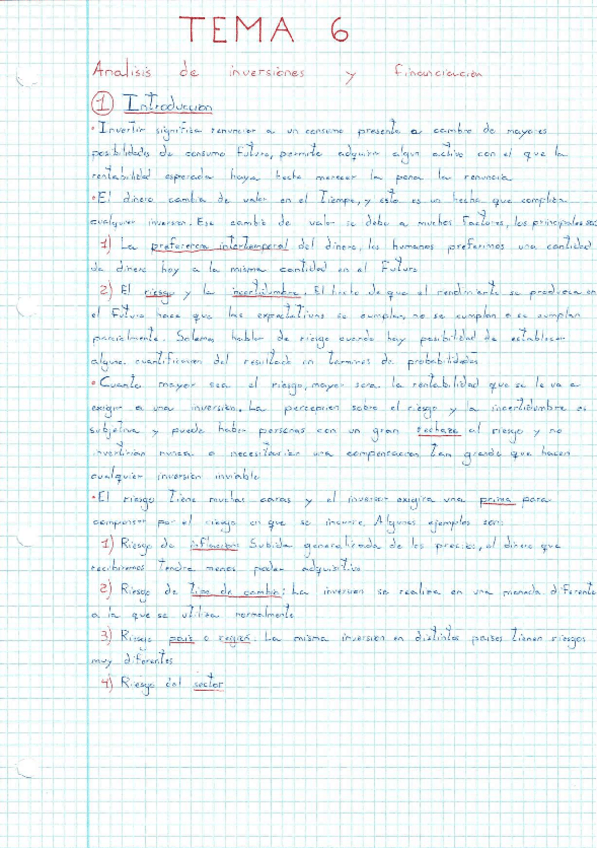 TEMA 6
Analisis de inversiones y financiación
1 Introduccion
• Invertir significa renunciar a un consumo presente a cambio de mayores
posibilidades de consumo futuro, permite adquirir algun activo con el que la
rentabilidad esperada haya hecho merecer la pena la renuncia
• El dinero cambia de valor en el Tiempo, y esto es un hecho que complica
cualquier inversion. Ese cambio de valor se debe a muchos factores, los principales son
1) La preferencia intertemporal del dinero, los humanos preferimos una cantidad
de dinero hoy a la misma cantidad en el futuro
2) El riesgo y la incertidumbre. El hecho de que el rendimiento se produzca en
el futuro hace que las expectativas se cumplan, no se cumplan o se cumplan
parcialmente. Solemos hablar de riesgo cuando hay posibilidad de establecer
alguna cuantificacion del resultado en terminos de probabilidades
• Cuanto mayor sea el riesgo, mayor sera la rentabilidad que se le va a
exigir a una inversion. La percepcion sobre el riesgo y la incertidumbre es
subjetiva y puede haber personas con un gran rechazo al riesgo y no
invertirian nunca o necesitarian una compensacion tan grande que hacen
cualquier inversion inviable
• El riesgo tiene muchas caras y el inversor exigira una prima para
compensar por el riesgo en que se incurre. Algunos ejemplos son:
1) Riesgo de inflacion: Subida generalizada de los precios, el dinero que
recibiremos tendra menos poder adquisitivo
2) Riesgo de tipo de cambio: La inversion se realiza en una moneda diferente
a la que se utiliza normalmente
3) Riesgo pais o region. La misma inversion en distintos paises tienen riesgos
muy diferentes
4) Riesgo del sector